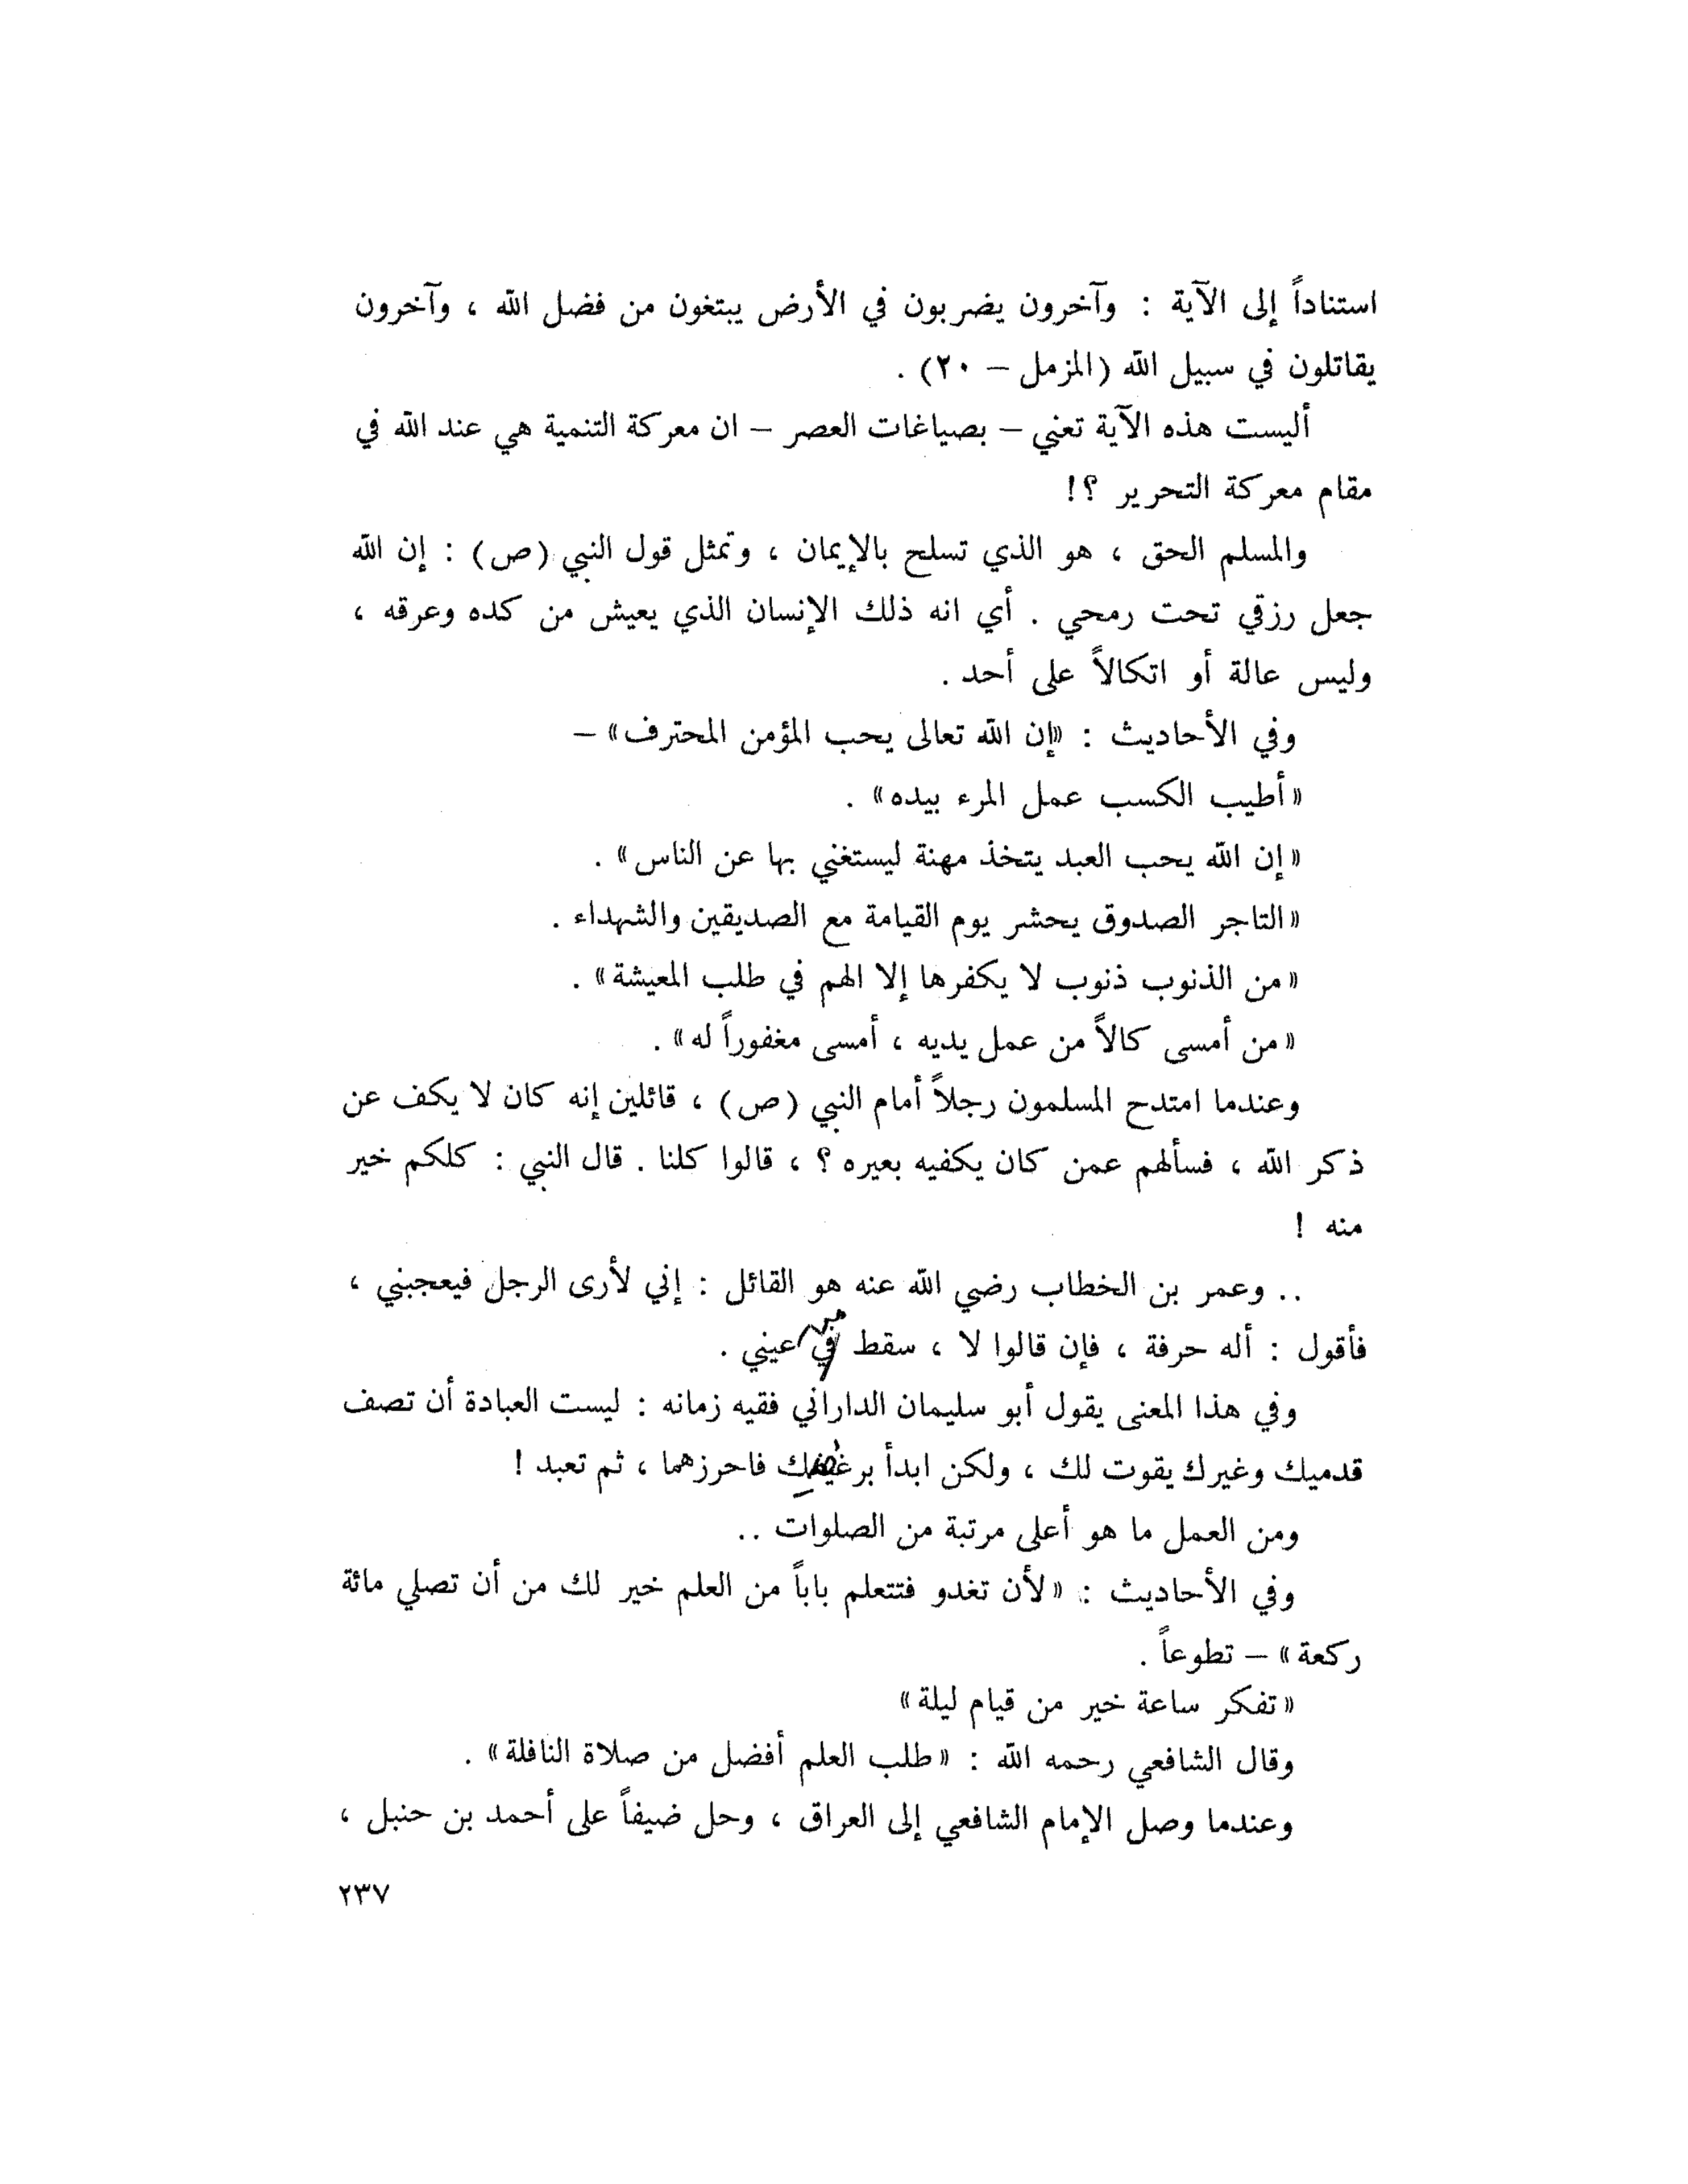 استناداً إلى الآية : وآخرون يضربون في الأرض يبتغون من فضل الله ، وآخرون
يقاتلون في سبيل الله (المزمل – ٢٠) .
أليست هذه الآية تعني – بصياغات العصر – ان معركة التنمية هي عند الله في
مقام معركة التحرير ؟!
والمسلم الحق ، هو الذي تسلح بالإيمان ، وتمثل قول النبي (ص) : إن الله
جعل رزقي تحت رمحي . أي انه ذلك الإنسان الذي يعيش من كده وعرقه ،
وليس عالة أو اتكالاً على أحد .
وفي الأحاديث : «إن الله تعالى يحب المؤمن المحترف» –
«أطيب الكسب عمل المرء بيده» .
«إن الله يحب العبد يتخذ مهنة ليستغني بها عن الناس» .
«التاجر الصدوق يحشر يوم القيامة مع الصديقين والشهداء .
«من الذنوب ذنوب لا يكفرها إلا الهم في طلب المعيشة» .
«من أمسى كالاً من عمل يديه ، أمسى مغفوراً له» .
وعندما امتدح المسلمون رجلاً أمام النبي (ص) ، قائلين إنه كان لا يكف عن
ذكر الله ، فسألهم عمن كان يكفيه بعيره ؟ ، قالوا كلنا . قال النبي : كلكم خير
منه !
.. وعمر بن الخطاب رضي الله عنه هو القائل : إني لأرى الرجل فيعجبني ،
فأقول : أله حرفة ، فإن قالوا لا ، سقط في من عيني .
وفي هذا المعنى يقول أبو سليمان الداراني فقيه زمانه : ليست العبادة أن تصف
قدميك وغيرك يقوت لك ، ولكن ابدأ فاحرزهما ، ثم تعبد !
ومن العمل ما هو أعلى مرتبة من الصلوات ..
وفي الأحاديث : «لأن تغدو فتتعلم باباً من العلم خير لك من أن تصلي مائة
ركعة» – تطوعاً .
«تفكر ساعة خير من قيام ليلة»
وقال الشافعي رحمه الله : «طلب العلم أفضل من صلاة النافلة» .
وعندما وصل الإمام الشافعي إلى العراق ، وحل ضيفاً على أحمد بن حنبل ،
٢٣٧